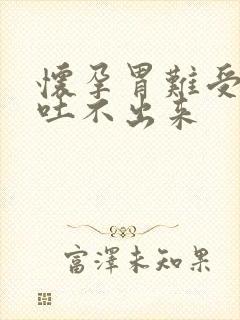 懷孕胃難受
吐不出来
富澤未知果